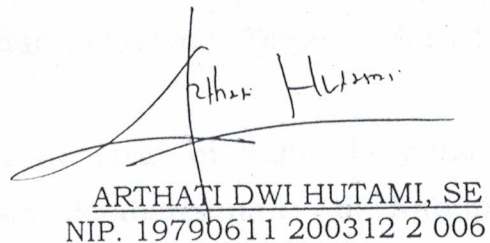 Arthati Hutami
ARTHATI DWI HUTAMI, SE
NIP. 19790611 200312 2 006